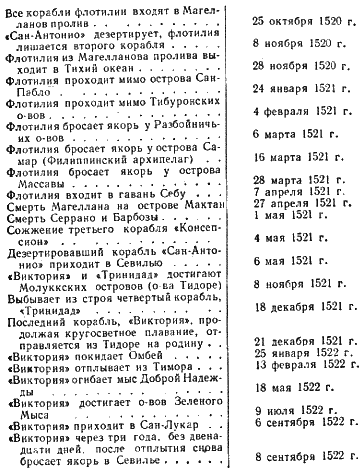 Все корабли флотилии входят в Магел-
ланов пролив . . . . . . . . . . 25 октября 1520 г.
«Сан-Антонио» дезертирует, флотилия
лишается второго корабля . . . . 8 ноября 1520 г.
Флотилия из Магелланова пролива вы-
ходит в Тихий океан . . . . . . . 28 ноября 1520 г.
Флотилия проходит мимо острова Сан-
Пабло . . . . . . . . . . . . . 24 января 1521 г.
Флотилия проходит мимо Тибуронских
о-вов . . . . . . . . . . . . . 4 февраля 1521 г.
Флотилия бросает якорь у Разбойничь-
их о-вов . . . . . . . . . . . . 6 марта 1521 г.
Флотилия бросает якорь у острова Са-
мар (Филиппинский архипелаг) . . 16 марта 1521 г.
Флотилия бросает якорь у острова
Массавы . . . . . . . . . . . . 28 марта 1521 г.
Флотилия входит в гавань Себу . . . 7 апреля 1521 г.
Смерть Магеллана на острове Мактан 27 апреля 1521 г.
Смерть Серрано и Барбозы . . . . . 1 мая 1521 г.
Сожжение третьего корабля «Консеп-
сион» . . . . . . . . . . . . . 4 мая 1521 г.
Дезертировавший корабль «Сан-Анто-
нио» приходит в Севилью . . . . . 6 мая 1521 г.
«Виктория» и «Тринидад» достигают
Молуккских островов (о-ва Тидоре) 8 ноября 1521 г.
Выбывает из строя четвертый корабль,
«Тринидад» . . . . . . . . . . . 18 декабря 1521 г.
Последний корабль, «Виктория», про-
должая кругосветное плавание, от-
правляется из Тидоре на родину . . 21 декабря 1521 г.
«Виктория» покидает Омбей . . . . 25 января 1522 г.
«Виктория» отплывает из Тимора . . . 13 февраля 1522 г.
«Виктория» огибает мыс Доброй Надеж-
ды . . . . . . . . . . . . . . 18 мая 1522 г.
«Виктория» достигает о-вов Зеленого
Мыса . . . . . . . . . . . . . 9 июля 1522 г.
«Виктория» приходит в Сан-Лукар . . 6 сентября 1522 г.
«Виктория» через три года, без двена-
дцати дней, после отплытия снова
бросает якорь в Севилье . . . . . 8 сентября 1522 г.